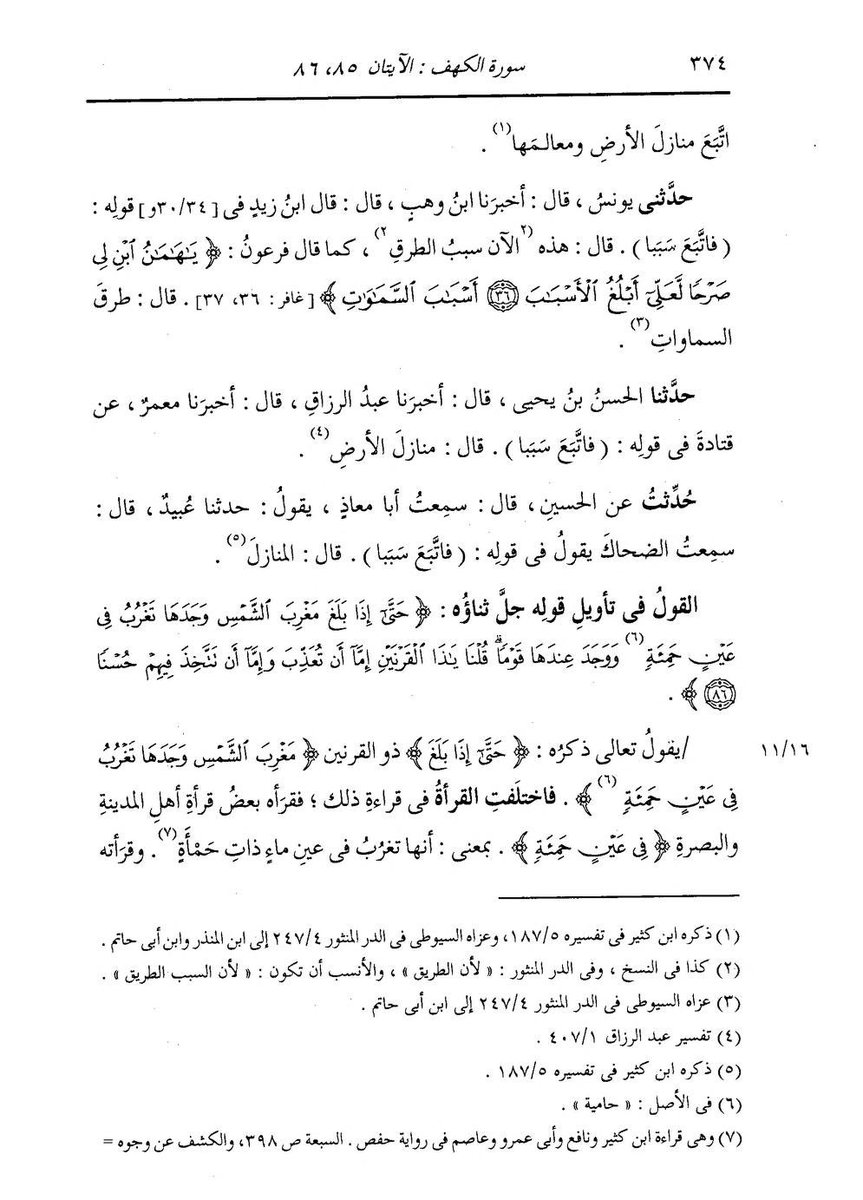 ٣٧٤ سورة الكهف : الآيتان ٨٥، ٨٦
اتَّبَعَ منازلَ الأرضِ ومعالـمَها(١) .
حدَّثنى يونسُ ، قال : أخبرَنا ابنُ وهبٍ ، قال : قال ابنُ زيدٍ فى [٣٠/٣٤و] قولِه :
( فاتَّبَعَ سَبَبا ) . قال : هذه (٢الآن سببُ الطرقِ٢) ، كما قال فرعونُ : ﴿ يَٰهَٰمَٰنُ ٱبْنِ لِى
صَرْحًا لَّعَلِّىٓ أَبْلُغُ ٱلْأَسْبَٰبَ ﴿٣٦﴾ أَسْبَٰبَ ٱلسَّمَٰوَٰتِ ﴾ [غافر : ٣٦، ٣٧] . قال : طرقَ
السماواتِ(٣) .
حدَّثنا الحسنُ بنُ يحيى ، قال : أخبرَنا عبدُ الرزاقِ ، قال : أخبرَنا معمرٌ ، عن
قتادةَ فى قولِه : ( فاتَّبَعَ سَبَبا ) . قال : منازلَ الأرضِ(٤) .
حُدِّثتُ عن الحسينِ ، قال : سمِعتُ أبا معاذٍ ، يقولُ : حدثنا عُبيدٌ ، قال :
سمِعتُ الضحاكَ يقولُ فى قولِه : ( فاتَّبَعَ سَبَبا ) . قال : المنازلَ(٥) .
القولُ فى تأويلِ قولِه جلَّ ثناؤُه : ﴿ حَتَّىٰٓ إِذَا بَلَغَ مَغْرِبَ ٱلشَّمْسِ وَجَدَهَا تَغْرُبُ فِى
عَيْنٍ حَمِئَةٍ(٦) وَوَجَدَ عِندَهَا قَوْمًاۗ قُلْنَا يَٰذَا ٱلْقَرْنَيْنِ إِمَّآ أَن تُعَذِّبَ وَإِمَّآ أَن تَتَّخِذَ فِيهِمْ حُسْنًا
﴿٨٦﴾ ﴾ .
/يقولُ تعالى ذكرُه : ﴿ حَتَّىٰٓ إِذَا بَلَغَ ﴾ ذو القرنين ﴿ مَغْرِبَ ٱلشَّمْسِ وَجَدَهَا تَغْرُبُ ١١/١٦
فِى عَيْنٍ حَمِئَةٍ(٦) ﴾ . فاختلَفتِ القرأةُ فى قراءةِ ذلك ؛ فقرَأه بعضُ قرأةِ أهلِ المدينةِ
والبصرةِ ﴿ فِى عَيْنٍ حَمِئَةٍ ﴾ . بمعنى : أنها تغرُبُ فى عينِ ماءٍ ذاتِ حَمْأَةٍ(٧) . وقرَأته
(١) ذكره ابن كثير فى تفسيره ١٨٧/٥، وعزاه السيوطى فى الدر المنثور ٢٤٧/٤ إلى ابن المنذر وابن أبى حاتم .
(٢) كذا فى النسخ ، وفى الدر المنثور : « لأن الطريق » ، والأنسب أن تكون : « لأن السبب الطريق » .
(٣) عزاه السيوطى فى الدر المنثور ٢٤٧/٤ إلى ابن أبى حاتم .
(٤) تفسير عبد الرزاق ٤٠٧/١ .
(٥) ذكره ابن كثير فى تفسيره ١٨٧/٥ .
(٦) فى الأصل : « حامية » .
(٧) وهى قراءة ابن كثير ونافع وأبى عمرو وعاصم فى رواية حفص . السبعة ص ٣٩٨، والكشف عن وجوه =